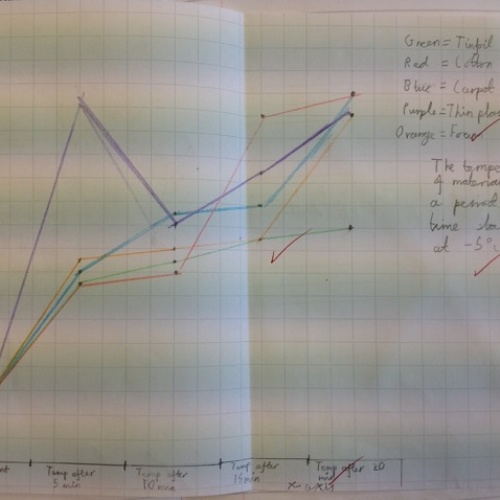 Green = Tinfoil
Red = Cotton
Blue = Carpet
Purple = Thin plas
Orange = Foam
The tempe
4 materia
a period
time sta
at -5°
nt
Temp after
5 min
Temp after
10 min
Temp after
15 min
Temp after 20
min
x-axis